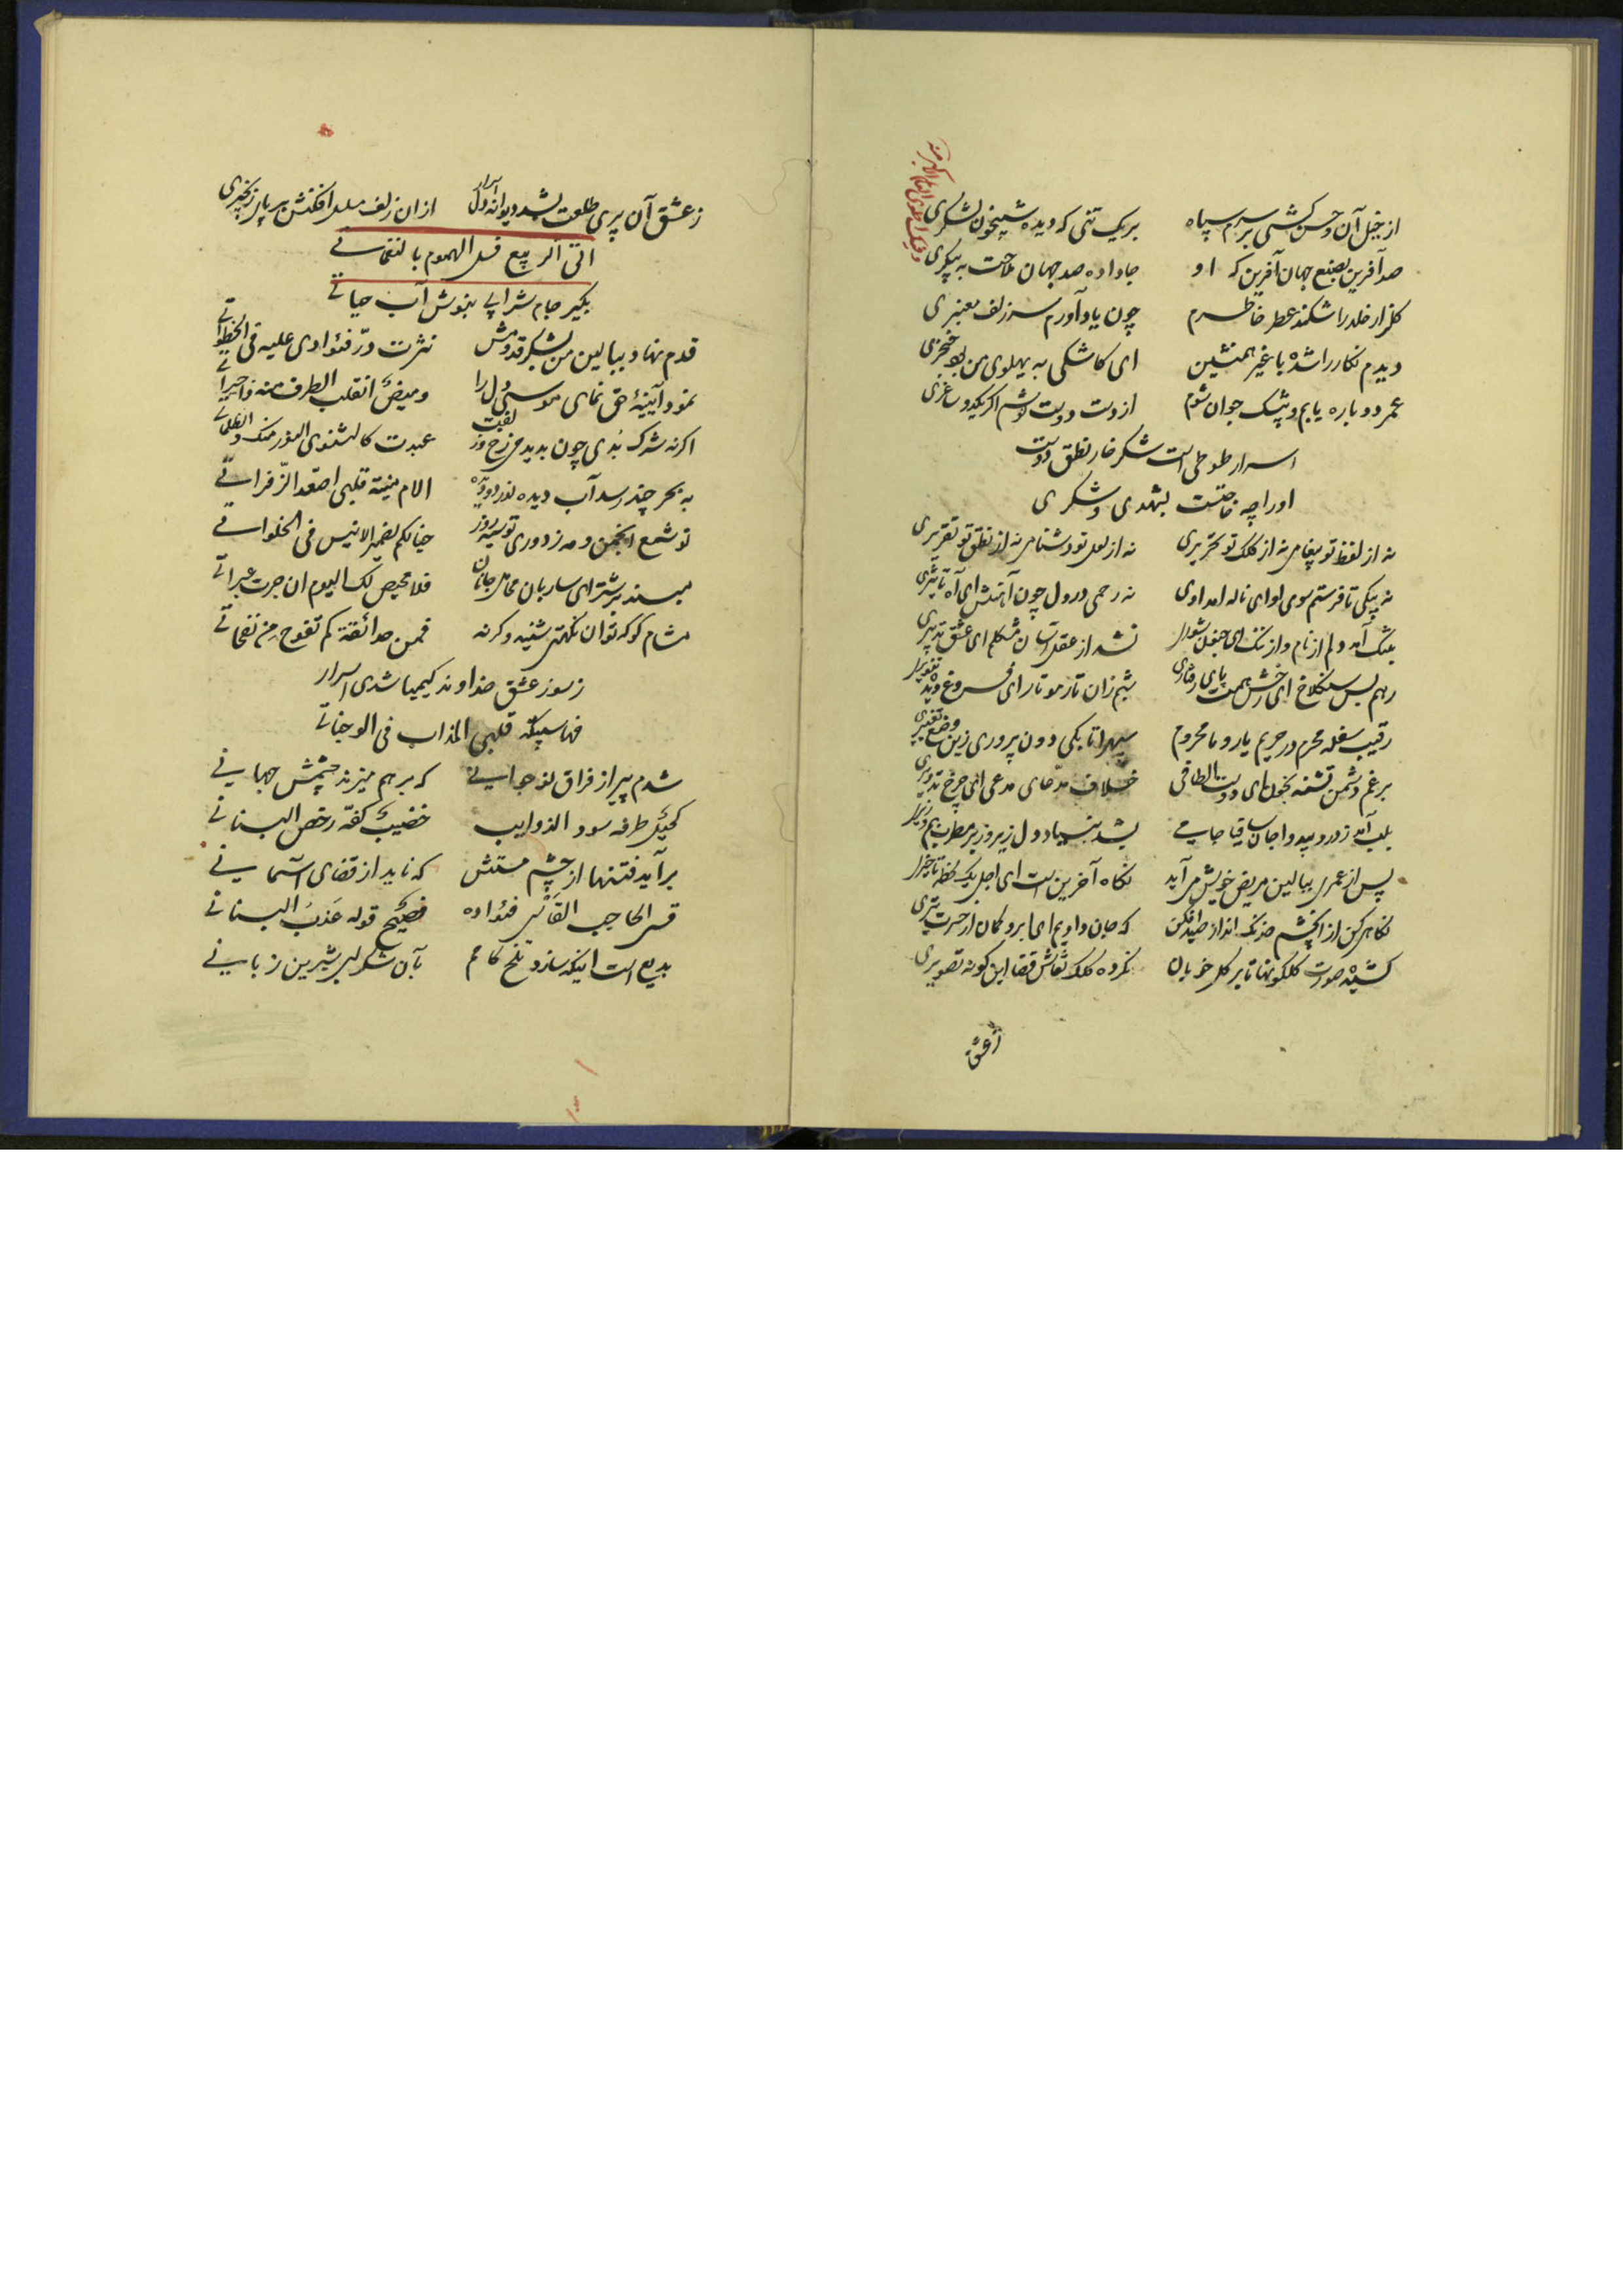 از خیل آن و حسن کشی بر سرم سپاه بر یک تنی که دیده شبیخون لشکری
صد آفرین بصنع جهان آفرین که او جا داده صد جهان ملاحت به پیکری
گلزار خلد را شکند عطر خاطرم چون یاد آورم سر زلف معنبری
دیدم نگار را شده با غیر همنشین ای کاشکی به پهلوی من بود خنجری
عمر دوباره یابم و بیشک جوان شوم از دست دوست نوشم اگر یکدو ساغری
اسرار طوطی است شکر خار نطق دوست
او را چه حاجتست بشهدی و شکری
نه از لفظ تو پیغامی نه از کلک تو تحریری نه از لعل تو دشنامی نه از نطق تو تقریری
نه پیکی تا فرستم سوی او ای ناله امدادی نه رحمی در دل چون آهنش ای آه تاثیری
بتنگ آمد دلم از نام و از ننگ ای جنون شوری نشد از عقل آسان مشکلم ای عشق تدبیری
رهم بس سنگلاخ ای رخش همت پای رفتاری شبم زان تار مو تار ای فروغ دیده تنویری
رقیب سفله محرم در حریم یار و ما محروم سپهرا تا بکی دون پروری زین وضع تغییری
برغم دشمن تشنه بخون ای دوست الطافی خلاف مدعای مدعی ای چرخ تدویری
بلب آمد ز درد جان ساقیا جامی بشد بنیاد دل زیر و زبر مطرب بم و زیری
پس از عمری ببالین مریض خویش می آید نگاه آخرین است ای اجل یک لحظه تاخیری
نگاهی کن از آن چشم خدنگ انداز صید افکن که جان دادیم ای ابرو کمان از حسرت تیری
کشیده صورت گلگونها تا بر گل خوبان نکرده کلک نقاش قضا این گونه تصویری
ز عشق
ز عشق آن پری طلعت بشد دیوانه دل اسرار از آن زلف مسلسل افکنش بر پای زنجیری
اتی الربیع فسل الهموم بالنغمات
بگیر جام شرابی بنوش آب حیاتی
قدم نهاد ببالین من بشکر قدومش نثرت در فؤادی علیه فی الخطواتی
نمود آیینهٔ حق نمای موسی دل را ومیض انقلب الطرف منه
اگر نه شرک بدی چون بدید می رخ و زلفت عبدت کالثنوی النور منک و الظلماتی
به بحر چند رسد آب دیده الام منیة قلبی اصعد الزفراتی
تو شمع انجمن و من ز دوری تو سیه روز خیالکم لضمیر الانیس فی الخلواتی
مبند بر شتر ای ساربان محامل جانان فلا محیص لک الیوم ان جرت عبراتی
مشام کو که توان نکهتی شنید وگرنه فمن حدائقة کم تفوح من نفحاتی
ز سوز عشق خداوند کیمیا شدی اسرار
فها سبیکة قلبی المذاب فی الوجناتی
شدم پیر از فراق نوجوانی که بر هم میزند چشمش جهانی
کحیل طرفه سود الذوایب خضیب کفه رخص البنانی
برآید فتنها از چشم مستش که ناید از قضای آسمانی
قسی الحاجب فؤاده فصیح قوله عذب البیانی
بدیع است اینکه سازد تلخ کامم بآن شکر لبی شیرین زبانی